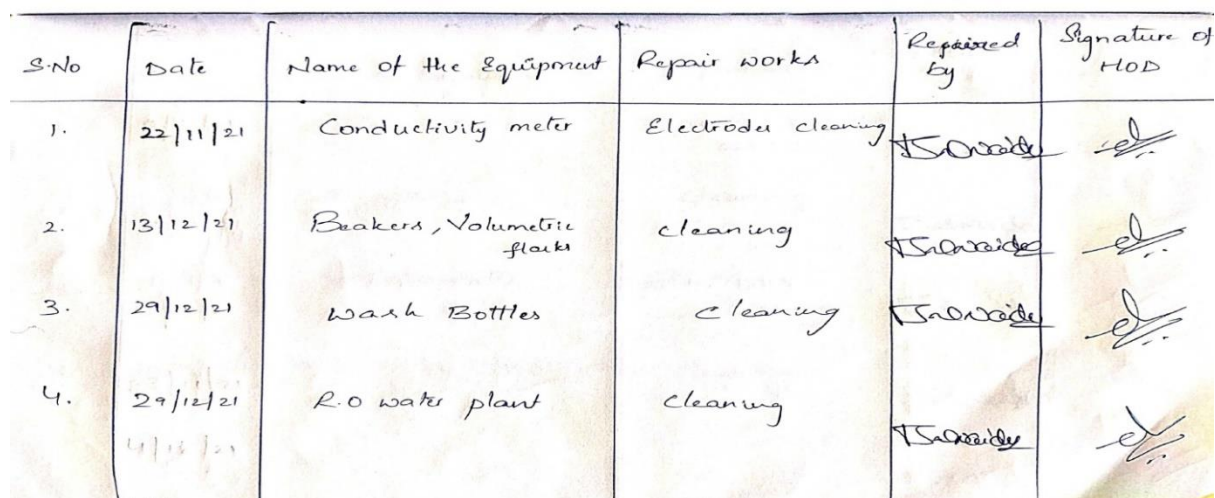 S.No Date Name of the Equipment Repair works Repaired by Signature of HOD
1. 22/11/21 Conductivity meter Electrodes cleaning
2. 13/12/21 Beakers, Volumetric flasks cleaning
3. 29/12/21 Wash Bottles cleaning
4. 29/12/21 R.O water plant cleaning